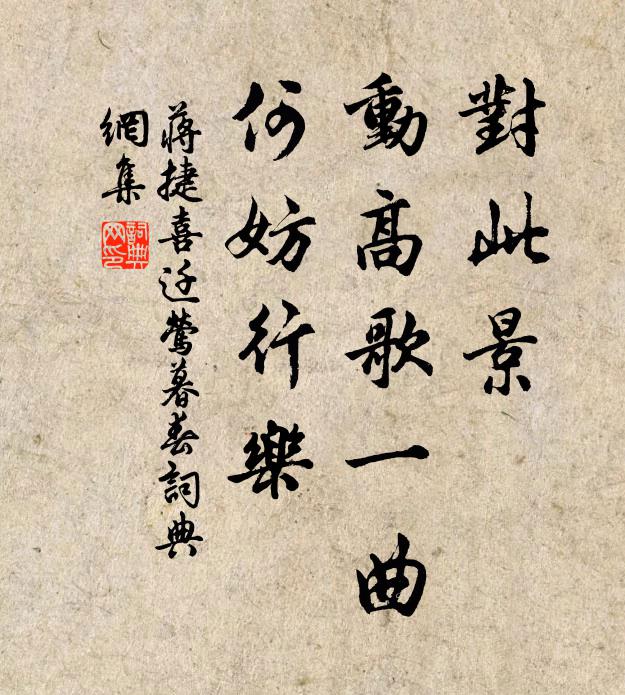 對此景
動高歌一曲
何妨行樂
蔣捷喜迁鶯暮春詞典
網集
詞典
网印